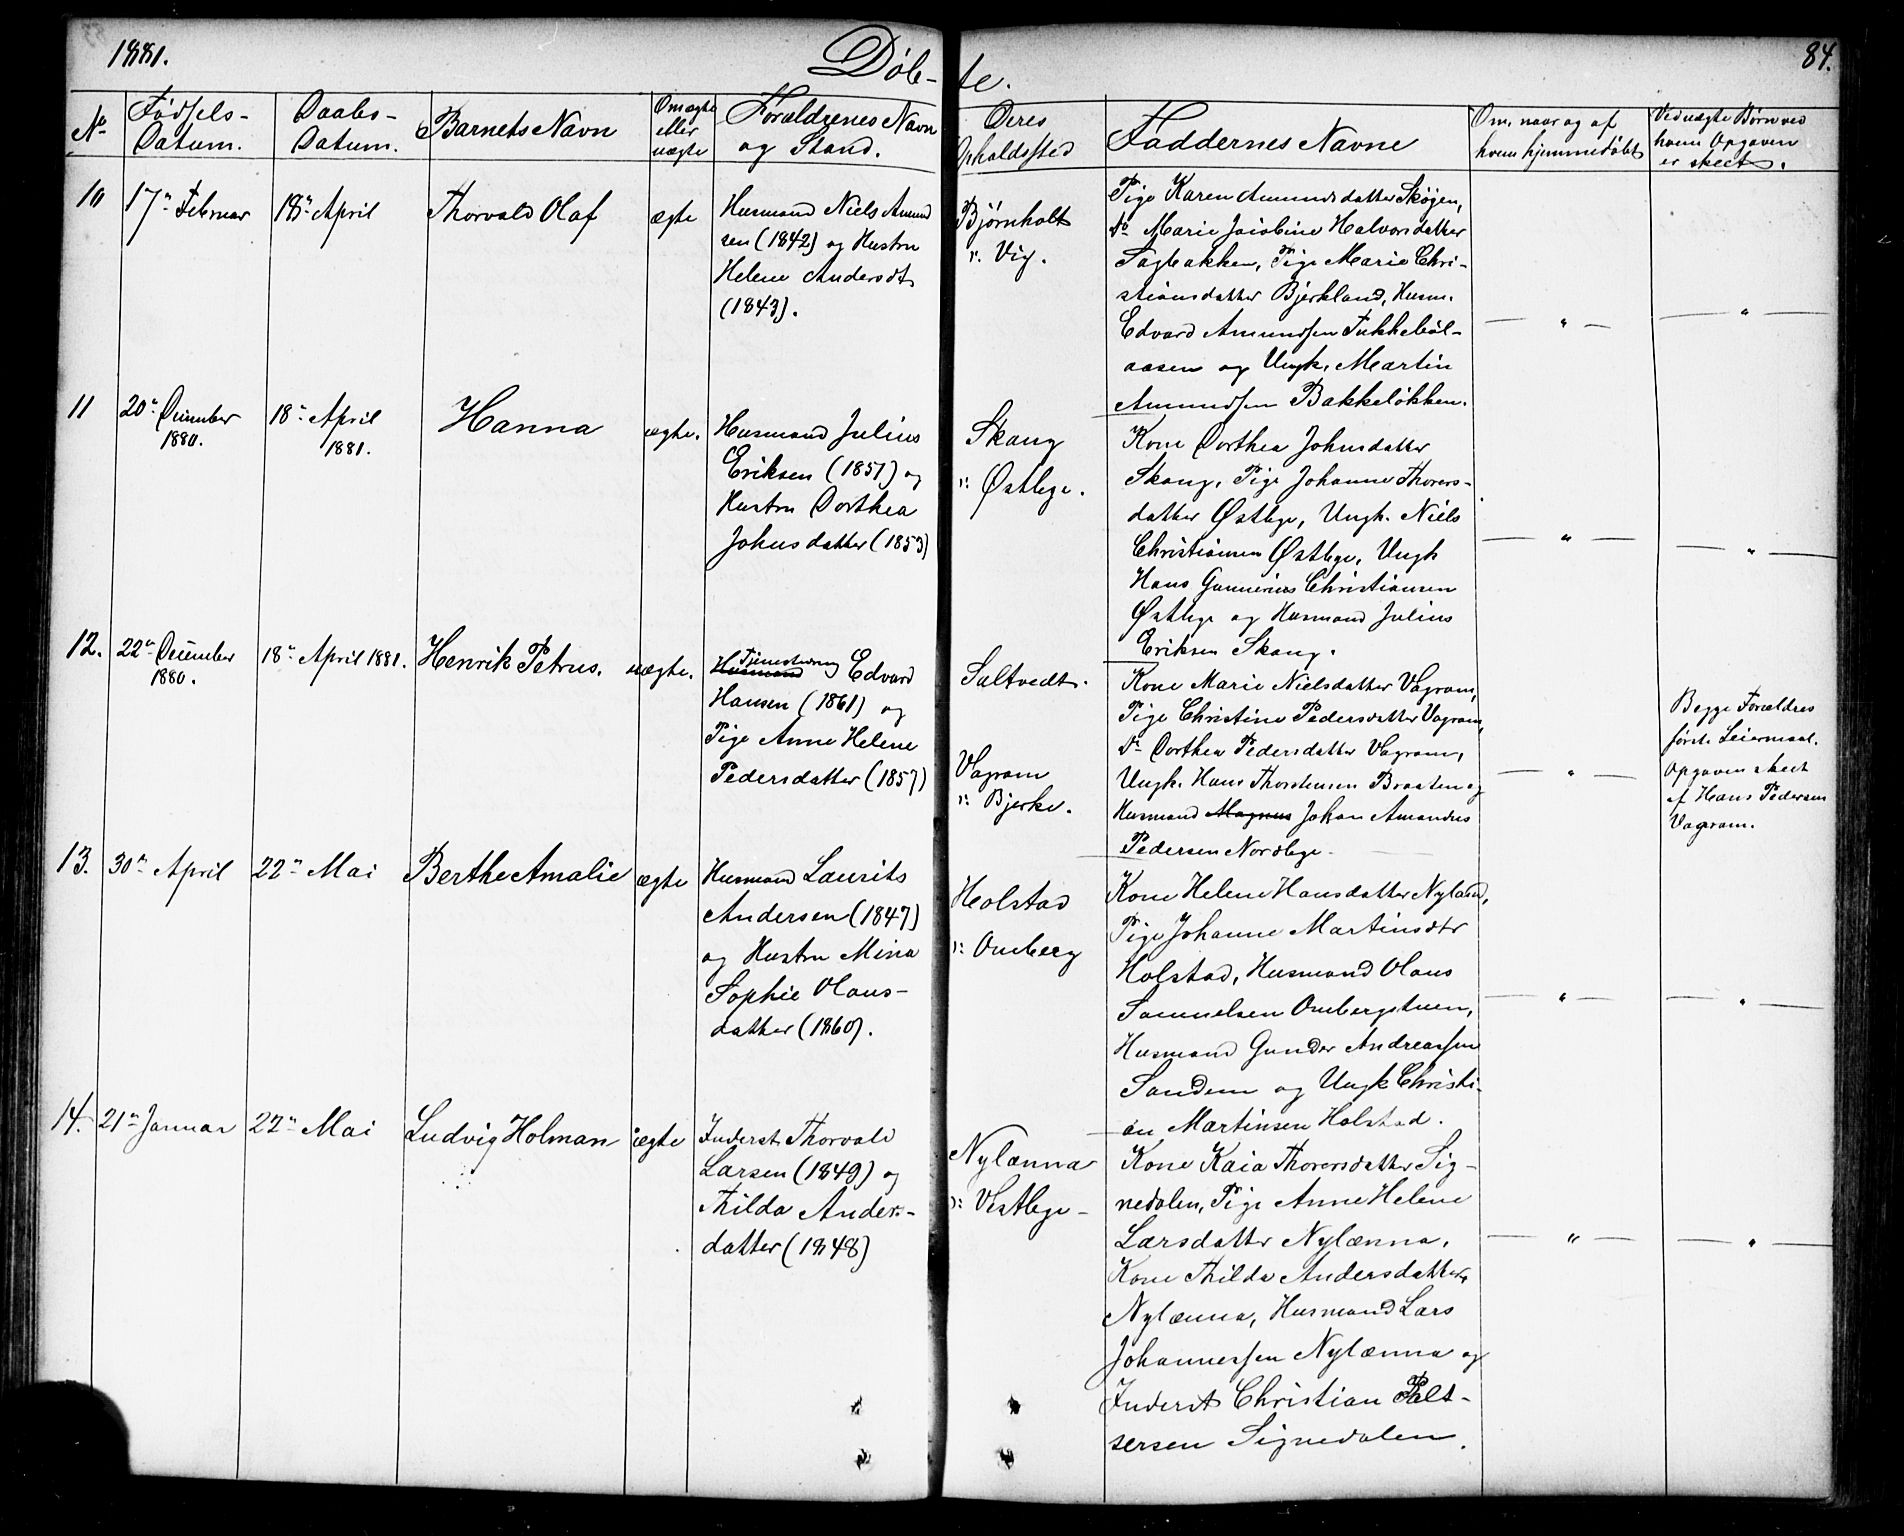 1881.
Døb-
te.
84.
No
Fødsels-
Datum.
Daabs-
Datum.
Barnets Navn
Om ægte
eller
uægte
Forældrenes Navn
og Stand.
Deres
Opholdssted
Faddernes Navne
Om, naar og af
hvem hjemmedøbt
Ved uægte Børn ved
hvem Opgaven
er skeet.
10
17de Februar
18de April
Thorvald Olaf
ægte
Husmand Niels Amund
sen (1842) og Hustru
Helene Andersdt
(1843).
Bjørnholt
u. Vig.
Pige Karen Amundsdatter Skøgen,
do Marie Jacobine Halvorsdatter
Sagbakken, Pige Marie Chri-
stiansdatter Bjerkland, Husm.
Edvard Amundsen Fukkebøl-
aasen og Ungk. Martin
Amundsen Bakkeløkken.
11
20de December
1880.
18de April
1881.
Hanna
ægte.
Husmand Julius
Eriksen (1851) og
Hustru Dorthea
Johnsdatter (1853)
Skaug
u. Østbye.
Kone Dorthea Johnsdatter
Skaug, Pige Johanne Thorers-
datter Østbye, Ungk. Niels
Christiansen Østbye, Ungk
Hans Gunnerius Christiansen
Østbye og Husmand Julius
Eriksen Skaug.
12.
22de December
1880.
18de April 1881.
Henrik Petrus.
uægte.
Tjenestedreng
Husmand Edvard
Hansen (1861) og
Pige Anne Helene
Pedersdatter (1857)
Saltvedt.
Vagram
u. Bjerke.
Kone Marie Nielsdatter Vagram,
Pige Christine Pedersdatter Vagram,
do Dorthea Pedersdatter Vagram,
Ungk. Hans Thorstensen Braaten og
Husmand Magnus Johan Amandus
Pedersen Nordbye.
Begge Forældres
første Leiermaal.
Opgaven skeet
af Hans Pedersen
Vagram.
13.
30de April
22de Mai
Berthe Amalie
ægte
Husmand Laurits
Andersen (1847)
og Hustru Mina
Sophie Olaus-
datter (1860).
Holstad
u. Omberg
Kone Helene Hansdatter Nyland,
Pige Johanne Martinsdtr
Holstad, Husmand Olaus
Samuelsen Ombergstuen,
Husmand Gunder Andreassen
Sanden og Ungk Christi-
an Martinsen Holstad.
14.
21de Januar
22de Mai
Ludvig Holman
ægte
Inderst Thorvald
Larsen (1849) og
Thilda Anders-
datter (1848)
Nylænna
u. Vestbye
Kone Kaia Thorersdatter Sig-
nedalen, Pige Anne Helene
Larsdatter Nylænna,
Kone Thilda Andersdatter,
Nylænna, Husmand Lars
Johannessen Nylænna og
Inderst Christian Palt-
sersen Signedalen.